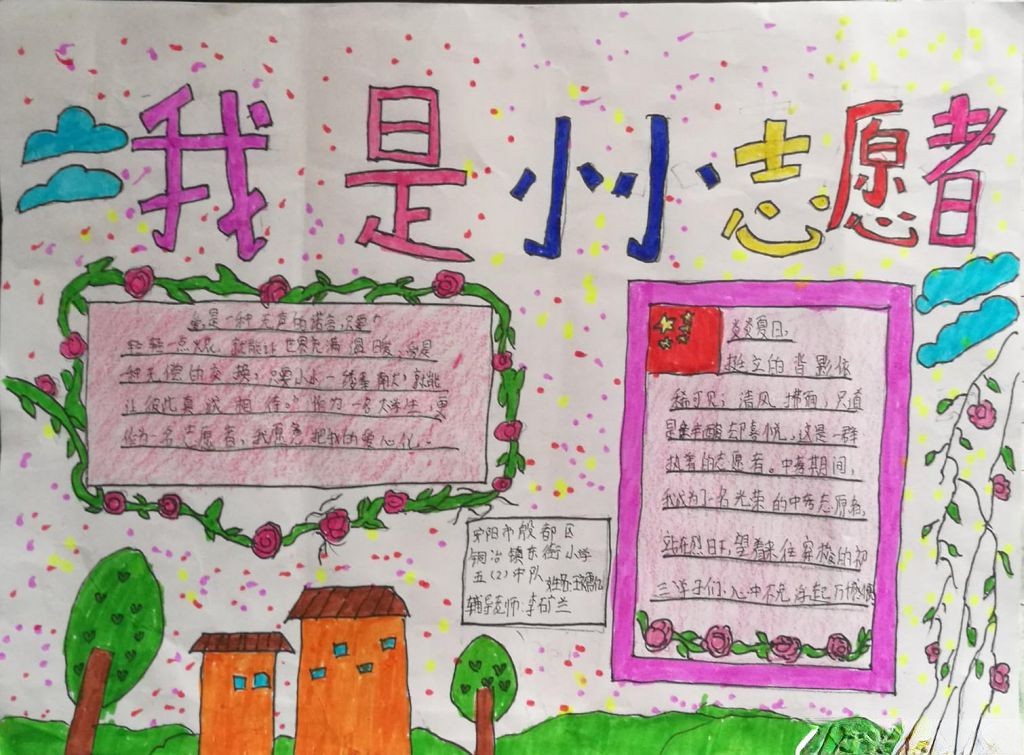 我是小小志愿者
爱是一种无声的诺言,只要
轻轻一点火花,就能让世界充满温暖,爱是
一种无偿的交换,只要小小一缕
让彼此真诚相待。作为一名大学生,更
作为一名志愿者,我愿意把我的爱心化
炎炎夏日,
挺立的背影依
稀可见;清风拂面,只道
是辛酸却喜悦,这是一群
执着的志愿者。中考期间,
我成为了一名光荣的中考志愿者,
站在烈日下,望着来往穿梭的初
三学子们,心中不免浮起万千感慨
安阳市殷都区
铜冶镇东街小学
五(2)中队 姓名:
辅导老师:李矿兰